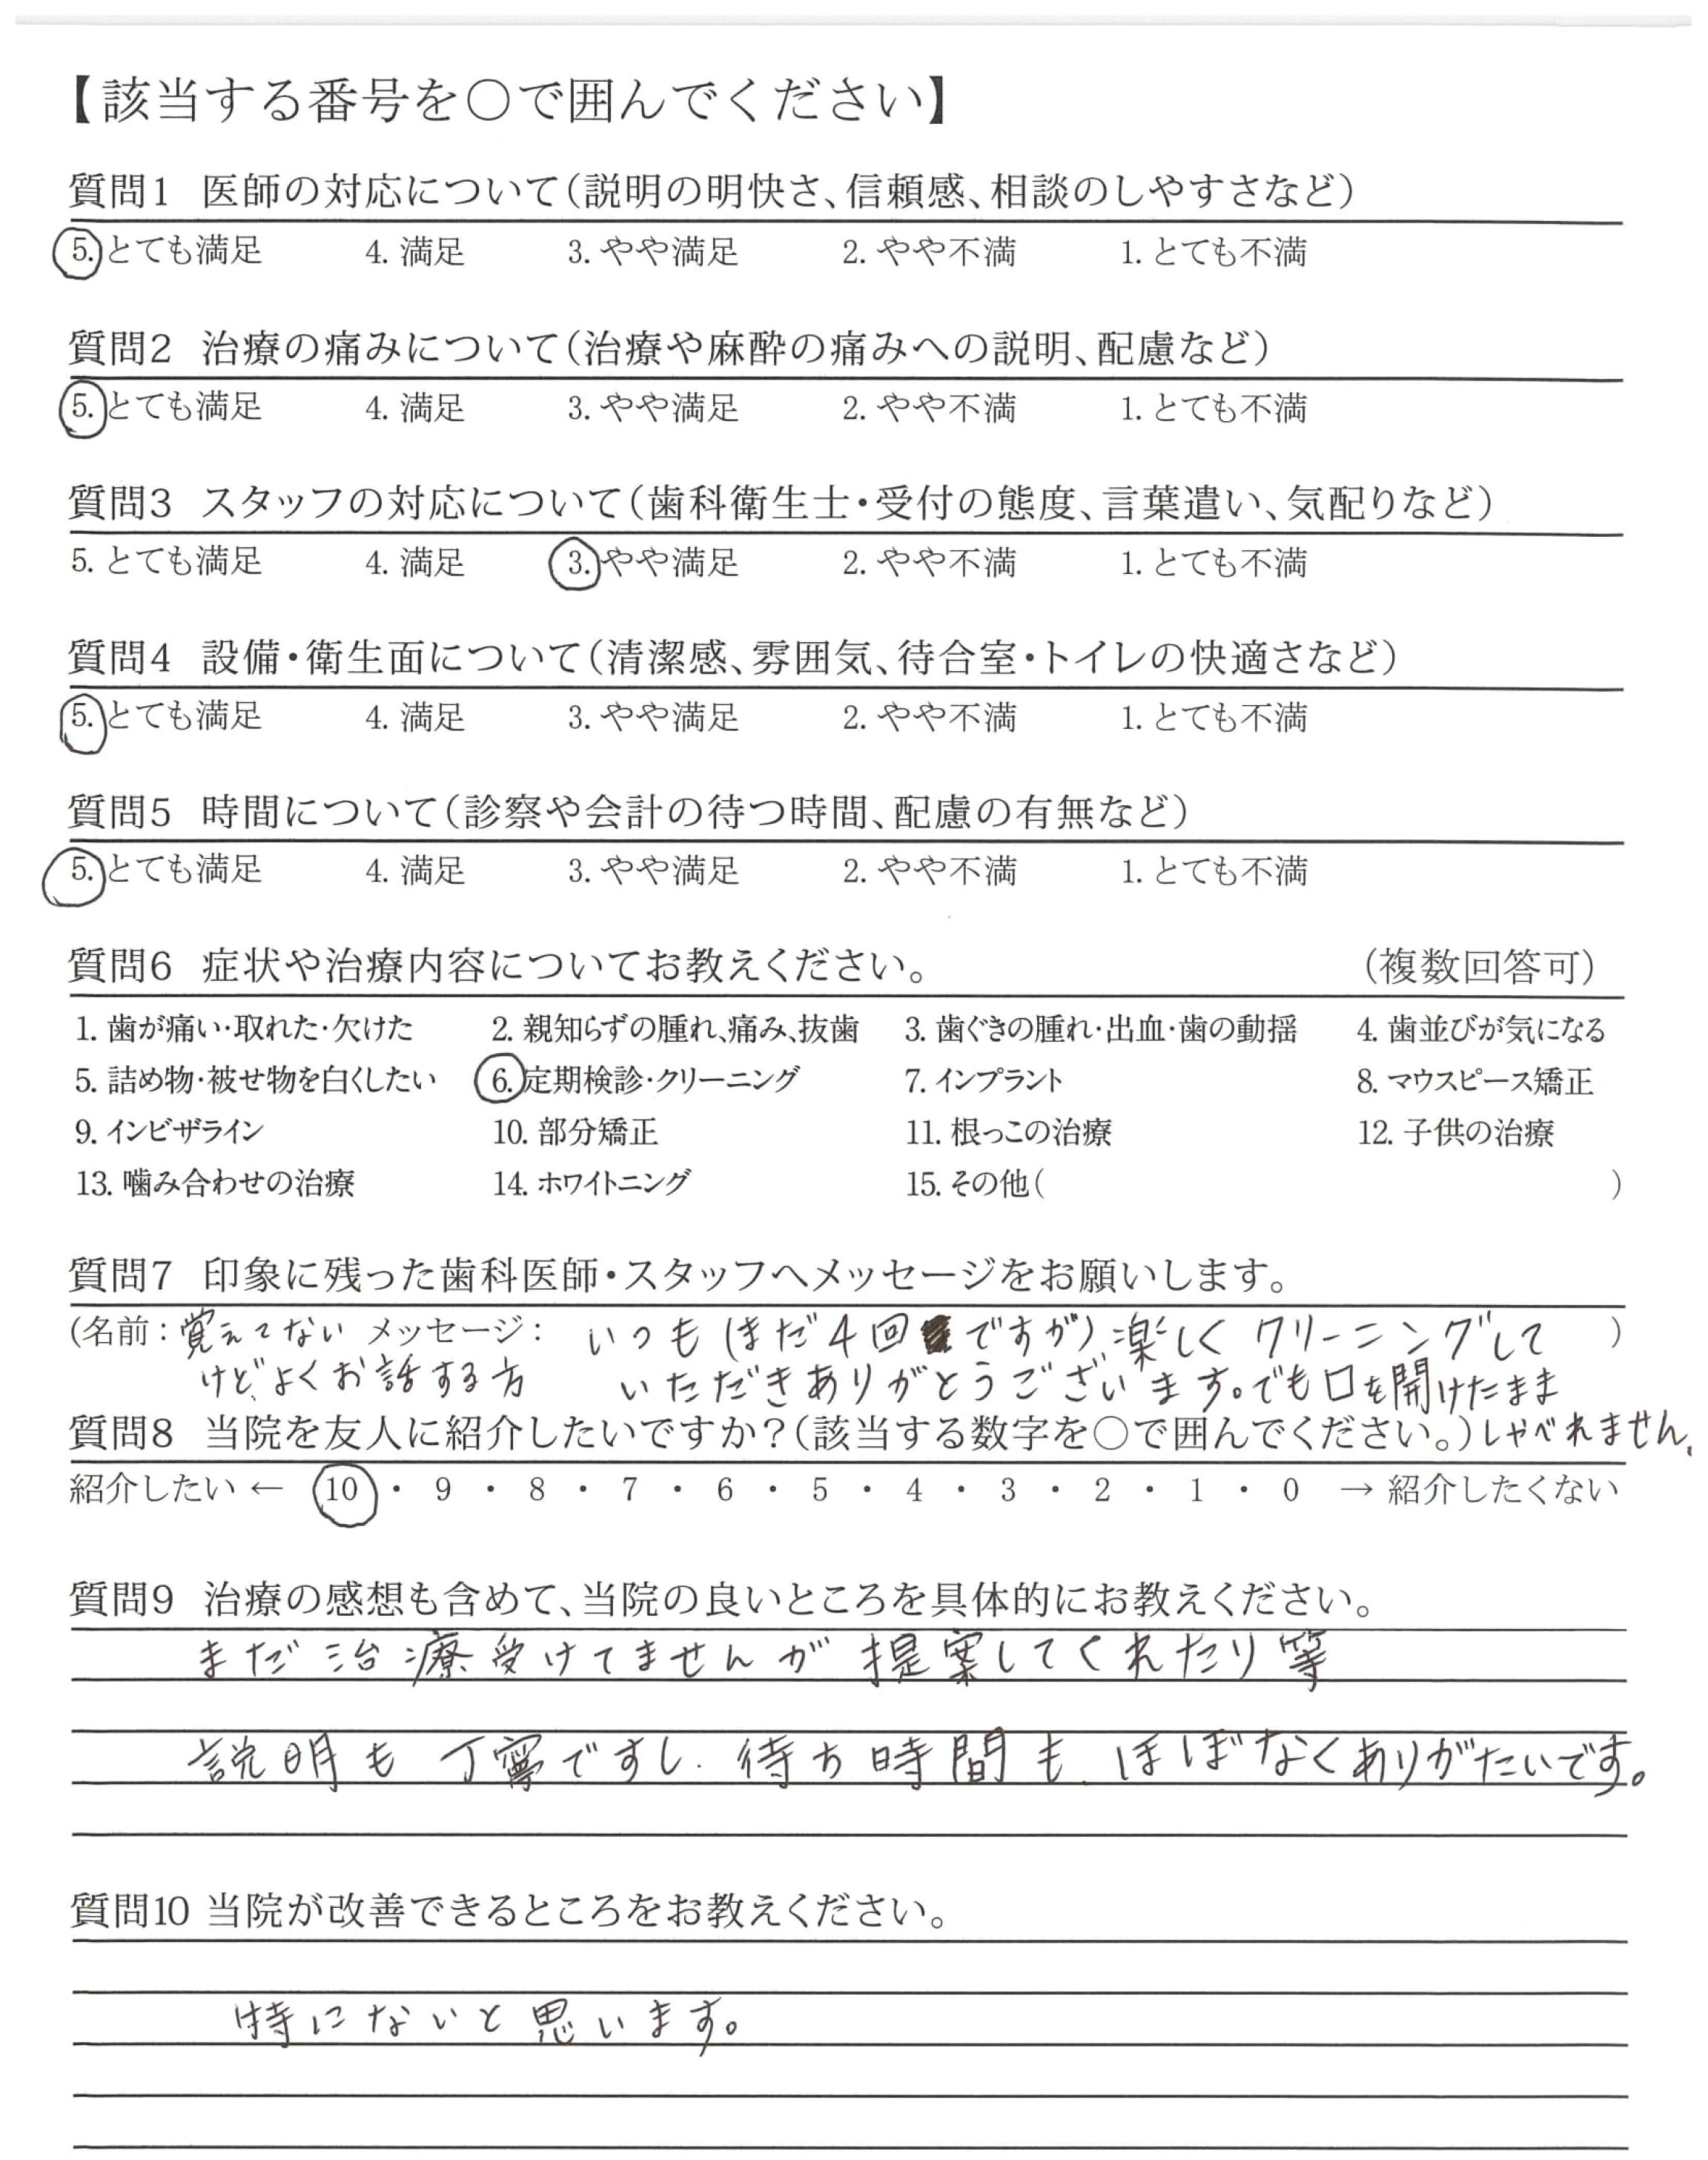 【該当する番号を○で囲んでください】
質問1 医師の対応について(説明の明快さ、信頼感、相談のしやすさなど)
5. とても満足 4. 満足 3. やや満足 2. やや不満 1. とても不満
質問2 治療の痛みについて(治療や麻酔の痛みへの説明、配慮など)
5. とても満足 4. 満足 3. やや満足 2. やや不満 1. とても不満
質問3 スタッフの対応について(歯科衛生士・受付の態度、言葉遣い、気配りなど)
5. とても満足 4. 満足 3. やや満足 2. やや不満 1. とても不満
質問4 設備・衛生面について(清潔感、雰囲気、待合室・トイレの快適さなど)
5. とても満足 4. 満足 3. やや満足 2. やや不満 1. とても不満
質問5 時間について(診察や会計の待つ時間、配慮の有無など)
5. とても満足 4. 満足 3. やや満足 2. やや不満 1. とても不満
質問6 症状や治療内容についてお教えください。 (複数回答可)
1. 歯が痛い・取れた・欠けた 2. 親知らずの腫れ、痛み、抜歯 3. 歯ぐきの腫れ・出血・歯の動揺 4. 歯並びが気になる
5. 詰め物・被せ物を白くしたい 6. 定期検診・クリーニング 7. インプラント 8. マウスピース矯正
9. インビザライン 10. 部分矯正 11. 根っこの治療 12. 子供の治療
13. 噛み合わせの治療 14. ホワイトニング 15. その他( )
質問7 印象に残った歯科医師・スタッフへメッセージをお願いします。
(名前：覚えてない メッセージ： いつも(まだ4回ですが)楽しくクリーニングして )
けど、よくお話する方 いただきありがとうございます。でも口を開けたまま
質問8 当院を友人に紹介したいですか？(該当する数字を○で囲んでください。)しゃべれません。
紹介したい ← 10 ・ 9 ・ 8 ・ 7 ・ 6 ・ 5 ・ 4 ・ 3 ・ 2 ・ 1 ・ 0 → 紹介したくない
質問9 治療の感想も含めて、当院の良いところを具体的にお教えください。
まだ治療受けてませんが提案してくれたり等
説明も丁寧ですし、待ち時間も、ほぼなくありがたいです。
質問10 当院が改善できるところをお教えください。
特にないと思います。